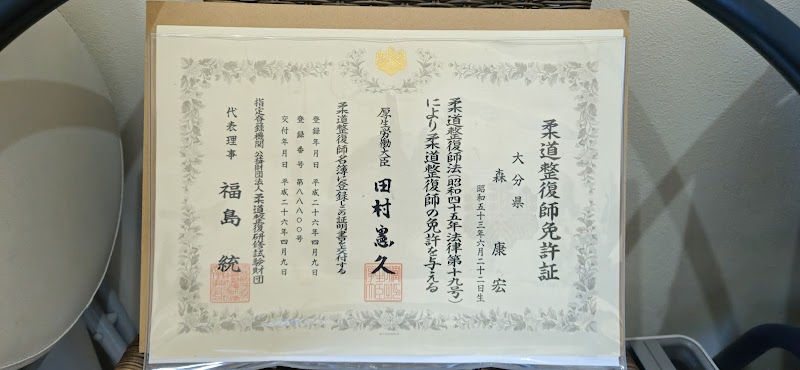 柔道整復師免許証
大分県
森 康宏
昭和五十三年六月二十二日生
柔道整復師法(昭和四十五年法律第十九号)
により柔道整復師の免許を与える
厚生労働大臣 田村憲久
柔道整復師名簿に登録しこの証明書を交付する
登録年月日 平成二十六年四月九日
登録番号 第八八八〇〇号
交付年月日 平成二十六年四月九日
指定登録機関 公益財団法人柔道整復研修試験財団
代表理事 福島 統